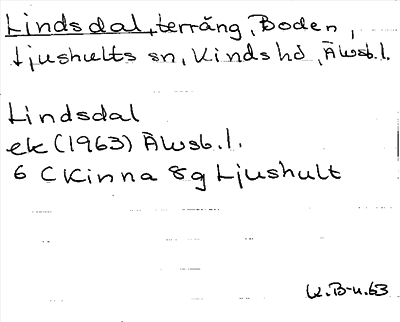 Lindsdal, terräng, Boden,
Ljushults sn, Kinds hd, Älvsb.l.
Lindsdal
ek (1963) Älvsb.l.
6 C Kinna 8g Ljushult
K.B-u.63